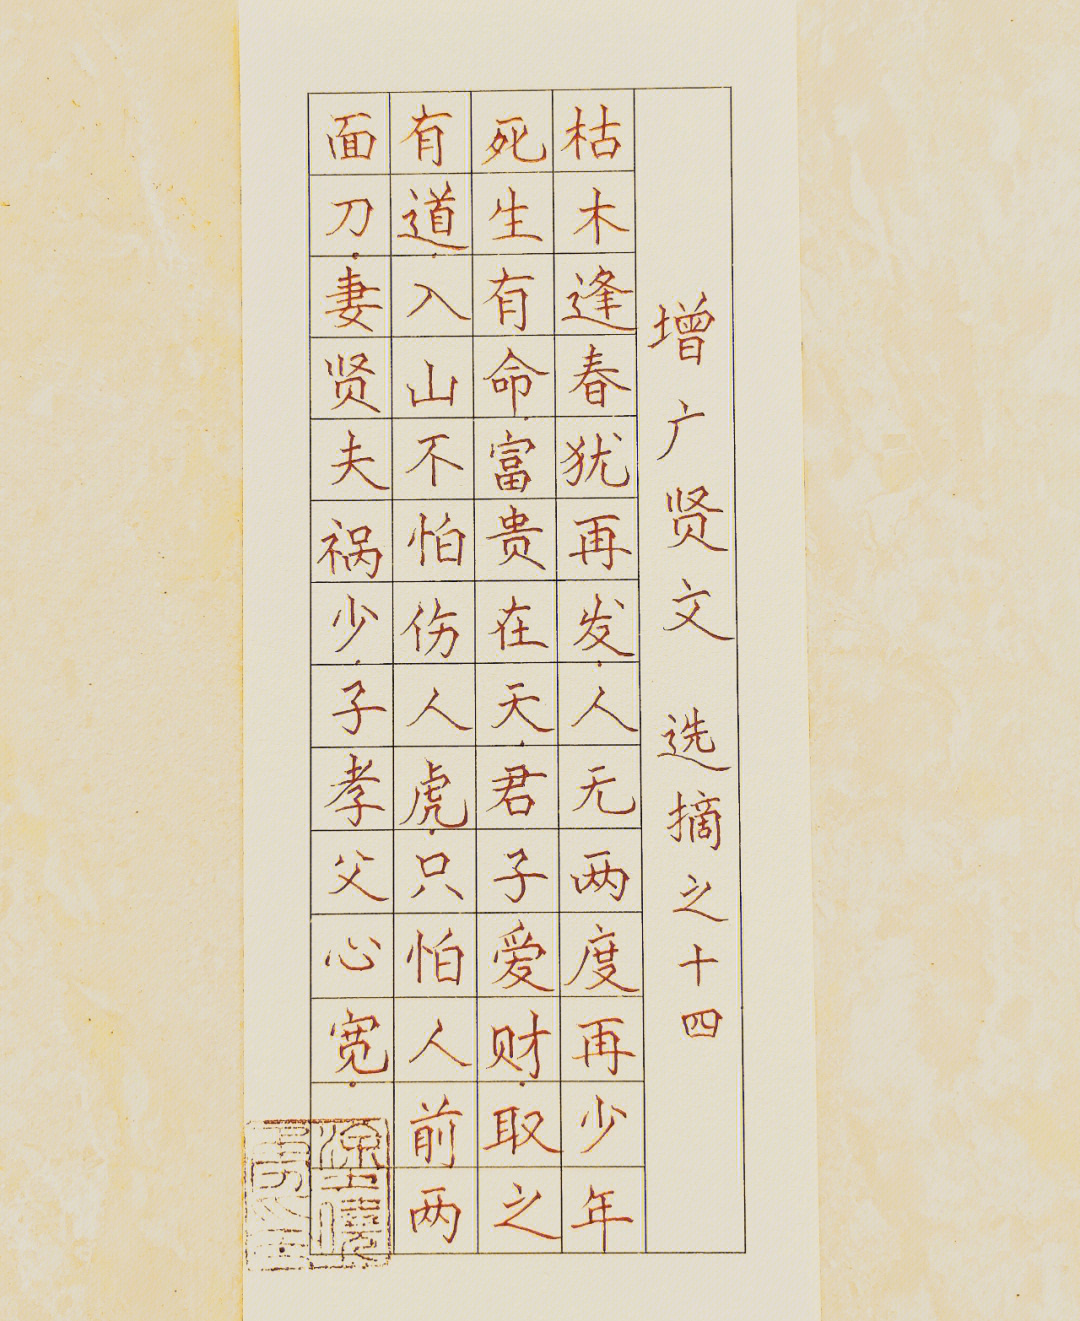 增广贤文 选摘之十四
枯木逢春犹再发.人无两度再少年
死生有命.富贵在天.君子爱财.取之
有道.入山不怕伤人虎.只怕人前两
面刀.妻贤夫祸少.子孝父心宽.